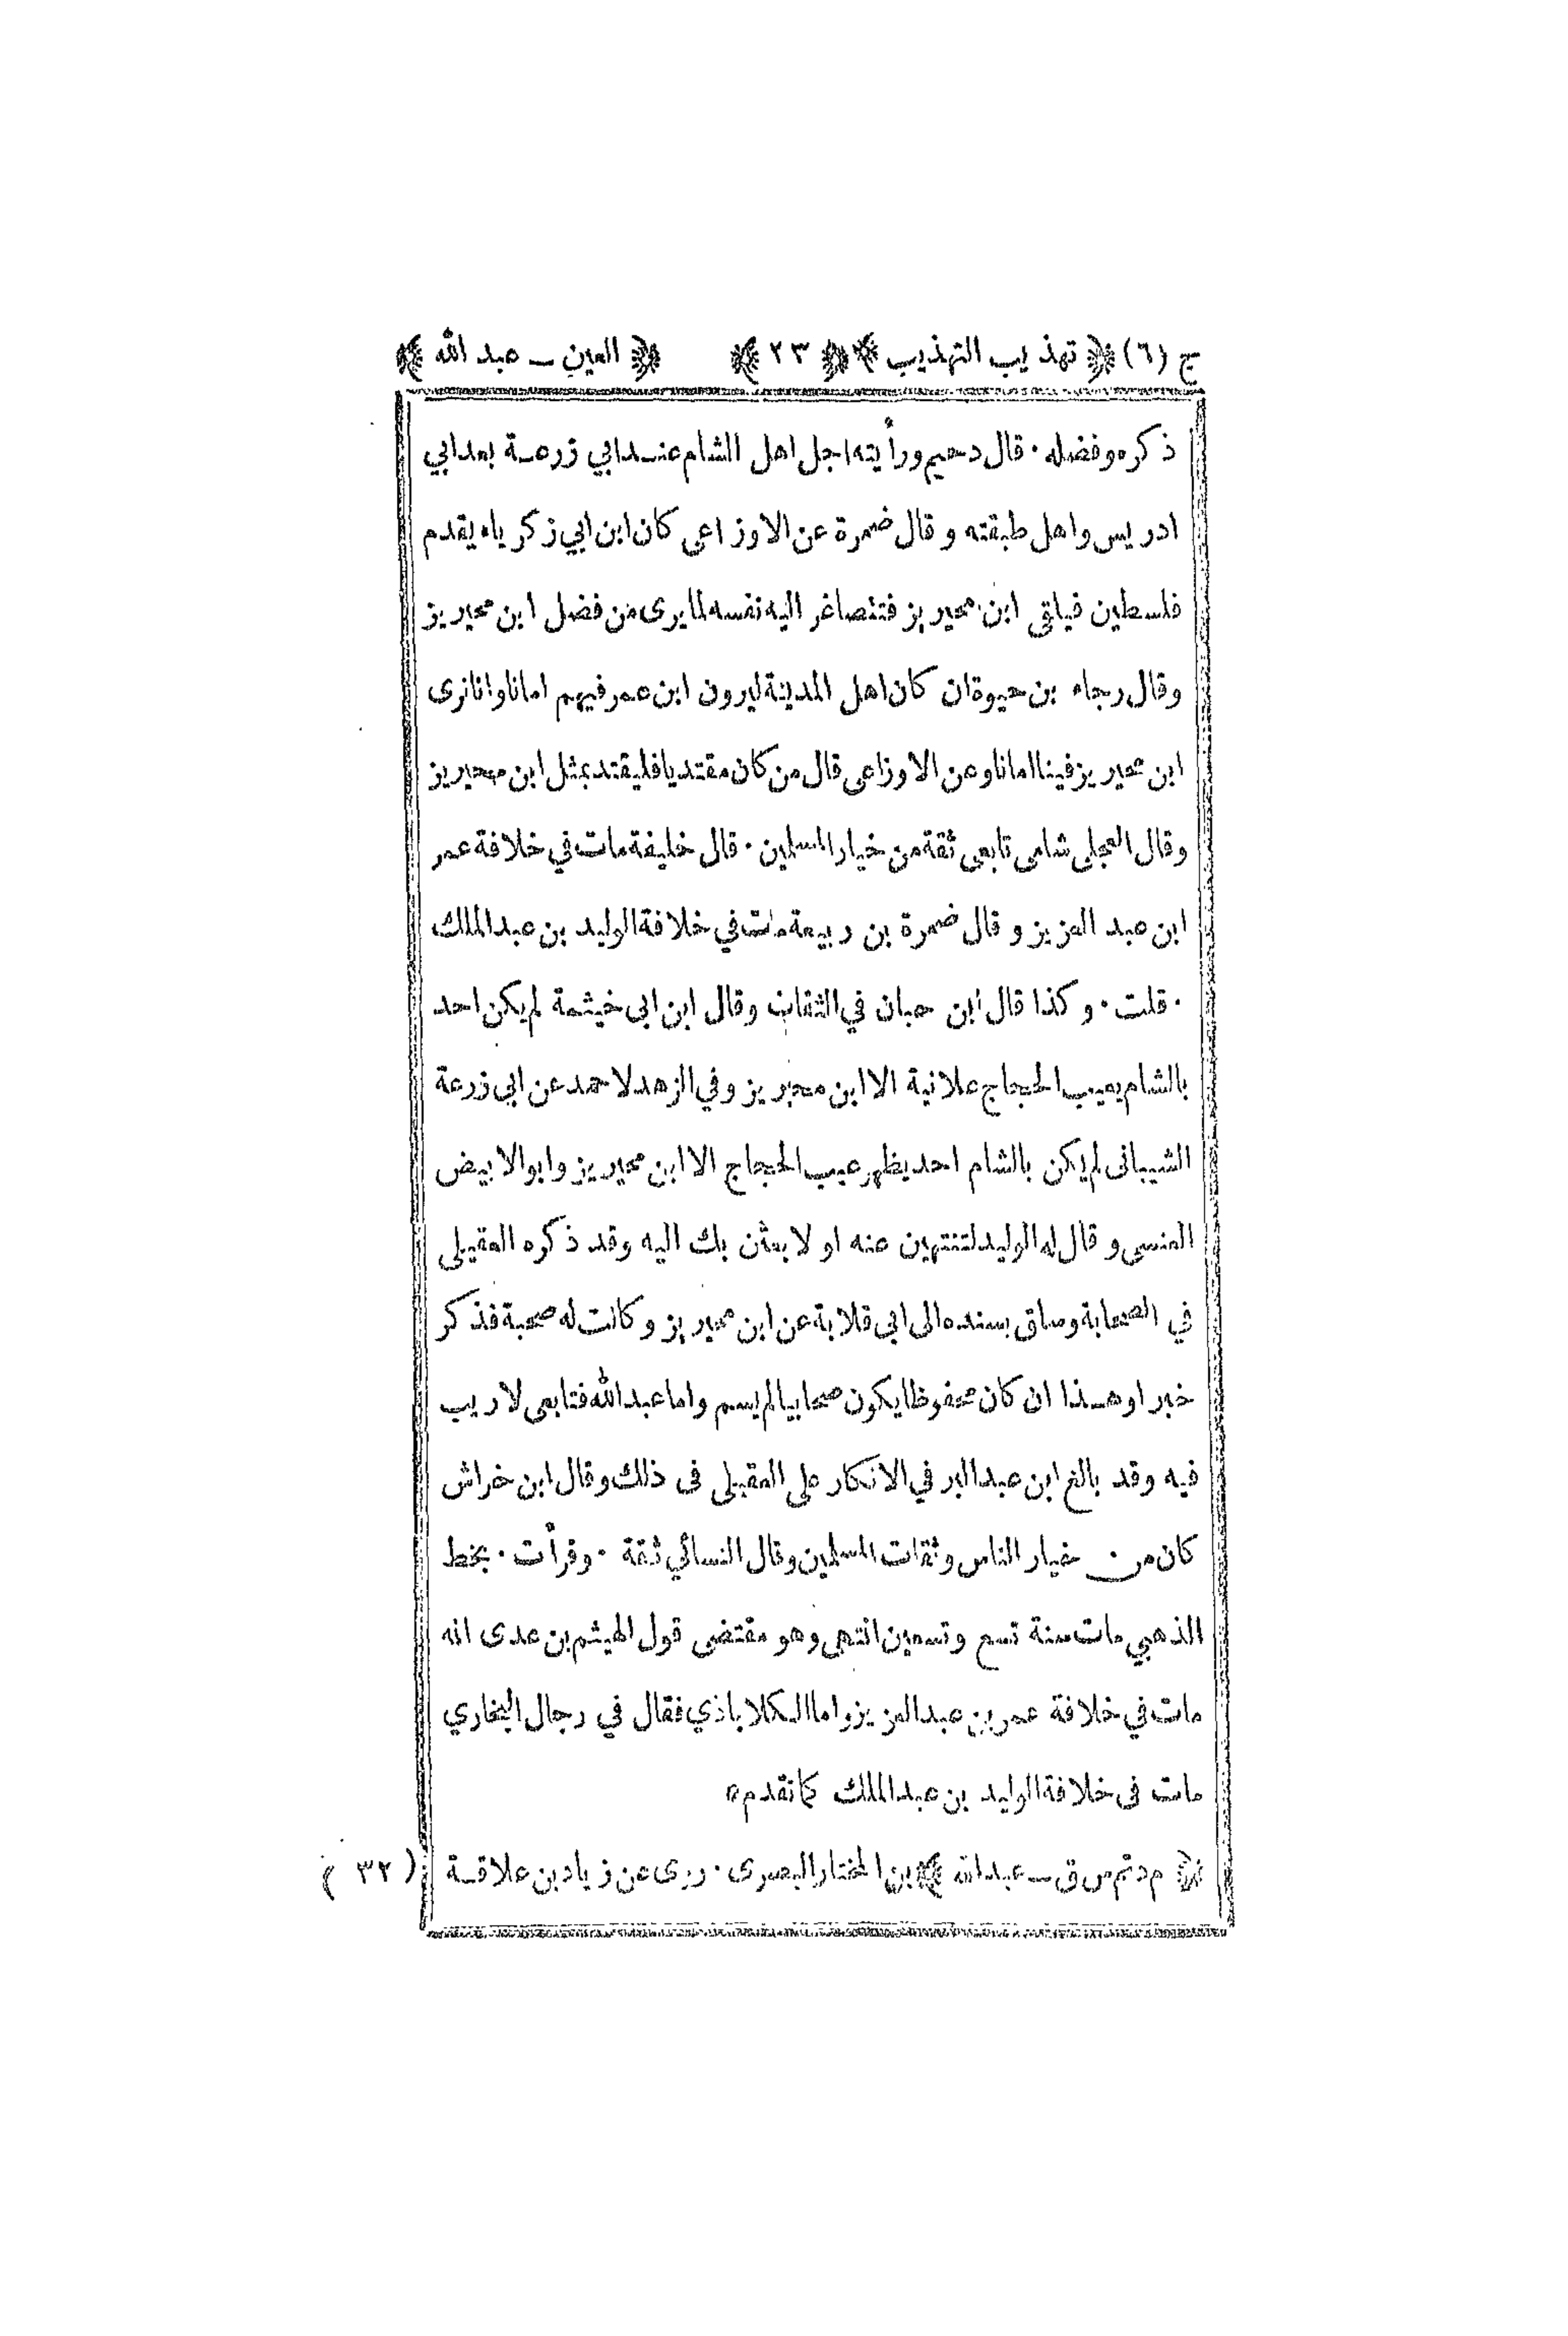 ج (٦) ﴿ تهذيب التهذيب ﴾ ﴿ ٢٣ ﴾ ﴿ العين ـ عبد الله ﴾
ذكره وفضله · قال دحيم ورأيته اجل اهل الشام عند ابي زرعة بعد ابي
ادريس واهل طبقته وقال ضمرة عن الاوزاعى كان ابن ابي زكرياء يقدم
فلسطين فيلقى ابن محيريز فتتصاغر اليه نفسه لما يرى من فضل ابن محيريز
وقال رجاء بن حيوة ان كان اهل المدينة ليرون ابن عمر فيهم امانا وانا نرى
ابن محيريز فينا امانا وعن الاوزاعى قال من كان مقتديا فليقتد بمثل ابن محيريز
وقال العجلى شامى تابعى ثقة من خيار المسلمين · قال خليفة مات في خلافة عمر
ابن عبد العزيز وقال ضمرة بن ربيعة مات في خلافة الوليد بن عبد الملك
· قلت · وكذا قال ابن حبان في الثقات وقال ابن ابى خيثمة لم يكن احد
بالشام يعيب الحجاج علانية الا ابن محيريز وفي الزهد لاحمد عن ابي زرعة
الشيبانى لم يكن بالشام احد يظهر عيب الحجاج الا ابن محيريز وابو الابيض
العنسى وقال له الوليد لتنتهين عنه او لابعثن بك اليه وقد ذكره العقيلى
في الصحابة وساق بسنده الى ابى قلابة عن ابن محيريز وكانت له صحبة فذكر
خبرا وهذا ان كان محفوظا يكون صحابيا لم يسم واما عبد الله فتابعى لا ريب
فيه وقد بالغ ابن عبد البر في الانكار على العقيلى فى ذلك وقال ابن خراش
كان من خيار الناس وثقات المسلمين وقال النسائي ثقة · وقرأت · بخط
الذهبي مات سنة تسع وتسعين انتهى وهو مقتضى قول الهيثم بن عدى انه
مات في خلافة عمر بن عبد العزيز واما الكلاباذي فقال في رجال البخاري
مات فى خلافة الوليد بن عبد الملك كما تقدم *
﴿ م د تم س ق ـ عبد الله ﴾ بن المختار البصرى · روى عن زياد بن علاقة (٣٢)